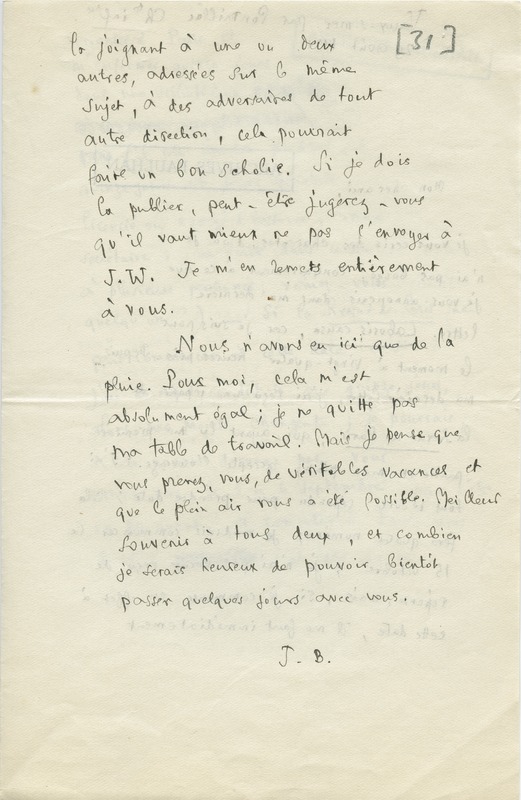 [31]
la joignant à une ou deux
autres, adressées sur le même
sujet, à des adversaires de tout
autre direction, cela pourrait
faire un bon scholie. Si je dois
la publier, peut-être jugerez-vous
qu'il vaut mieux ne pas l'envoyer à
J.W. Je m'en remets entièrement
à vous.
Nous n'avons eu ici que de la
pluie. Pour moi, cela m'est
absolument égal ; je ne quitte pas
ma table de travail. Mais je pense que
vous prenez, vous, de véritables vacances et
que le plein air vous a été possible. Meilleur
souvenir à tous deux, et combien
je serais heureux de pouvoir bientôt
passer quelques jours avec vous.
J. B.